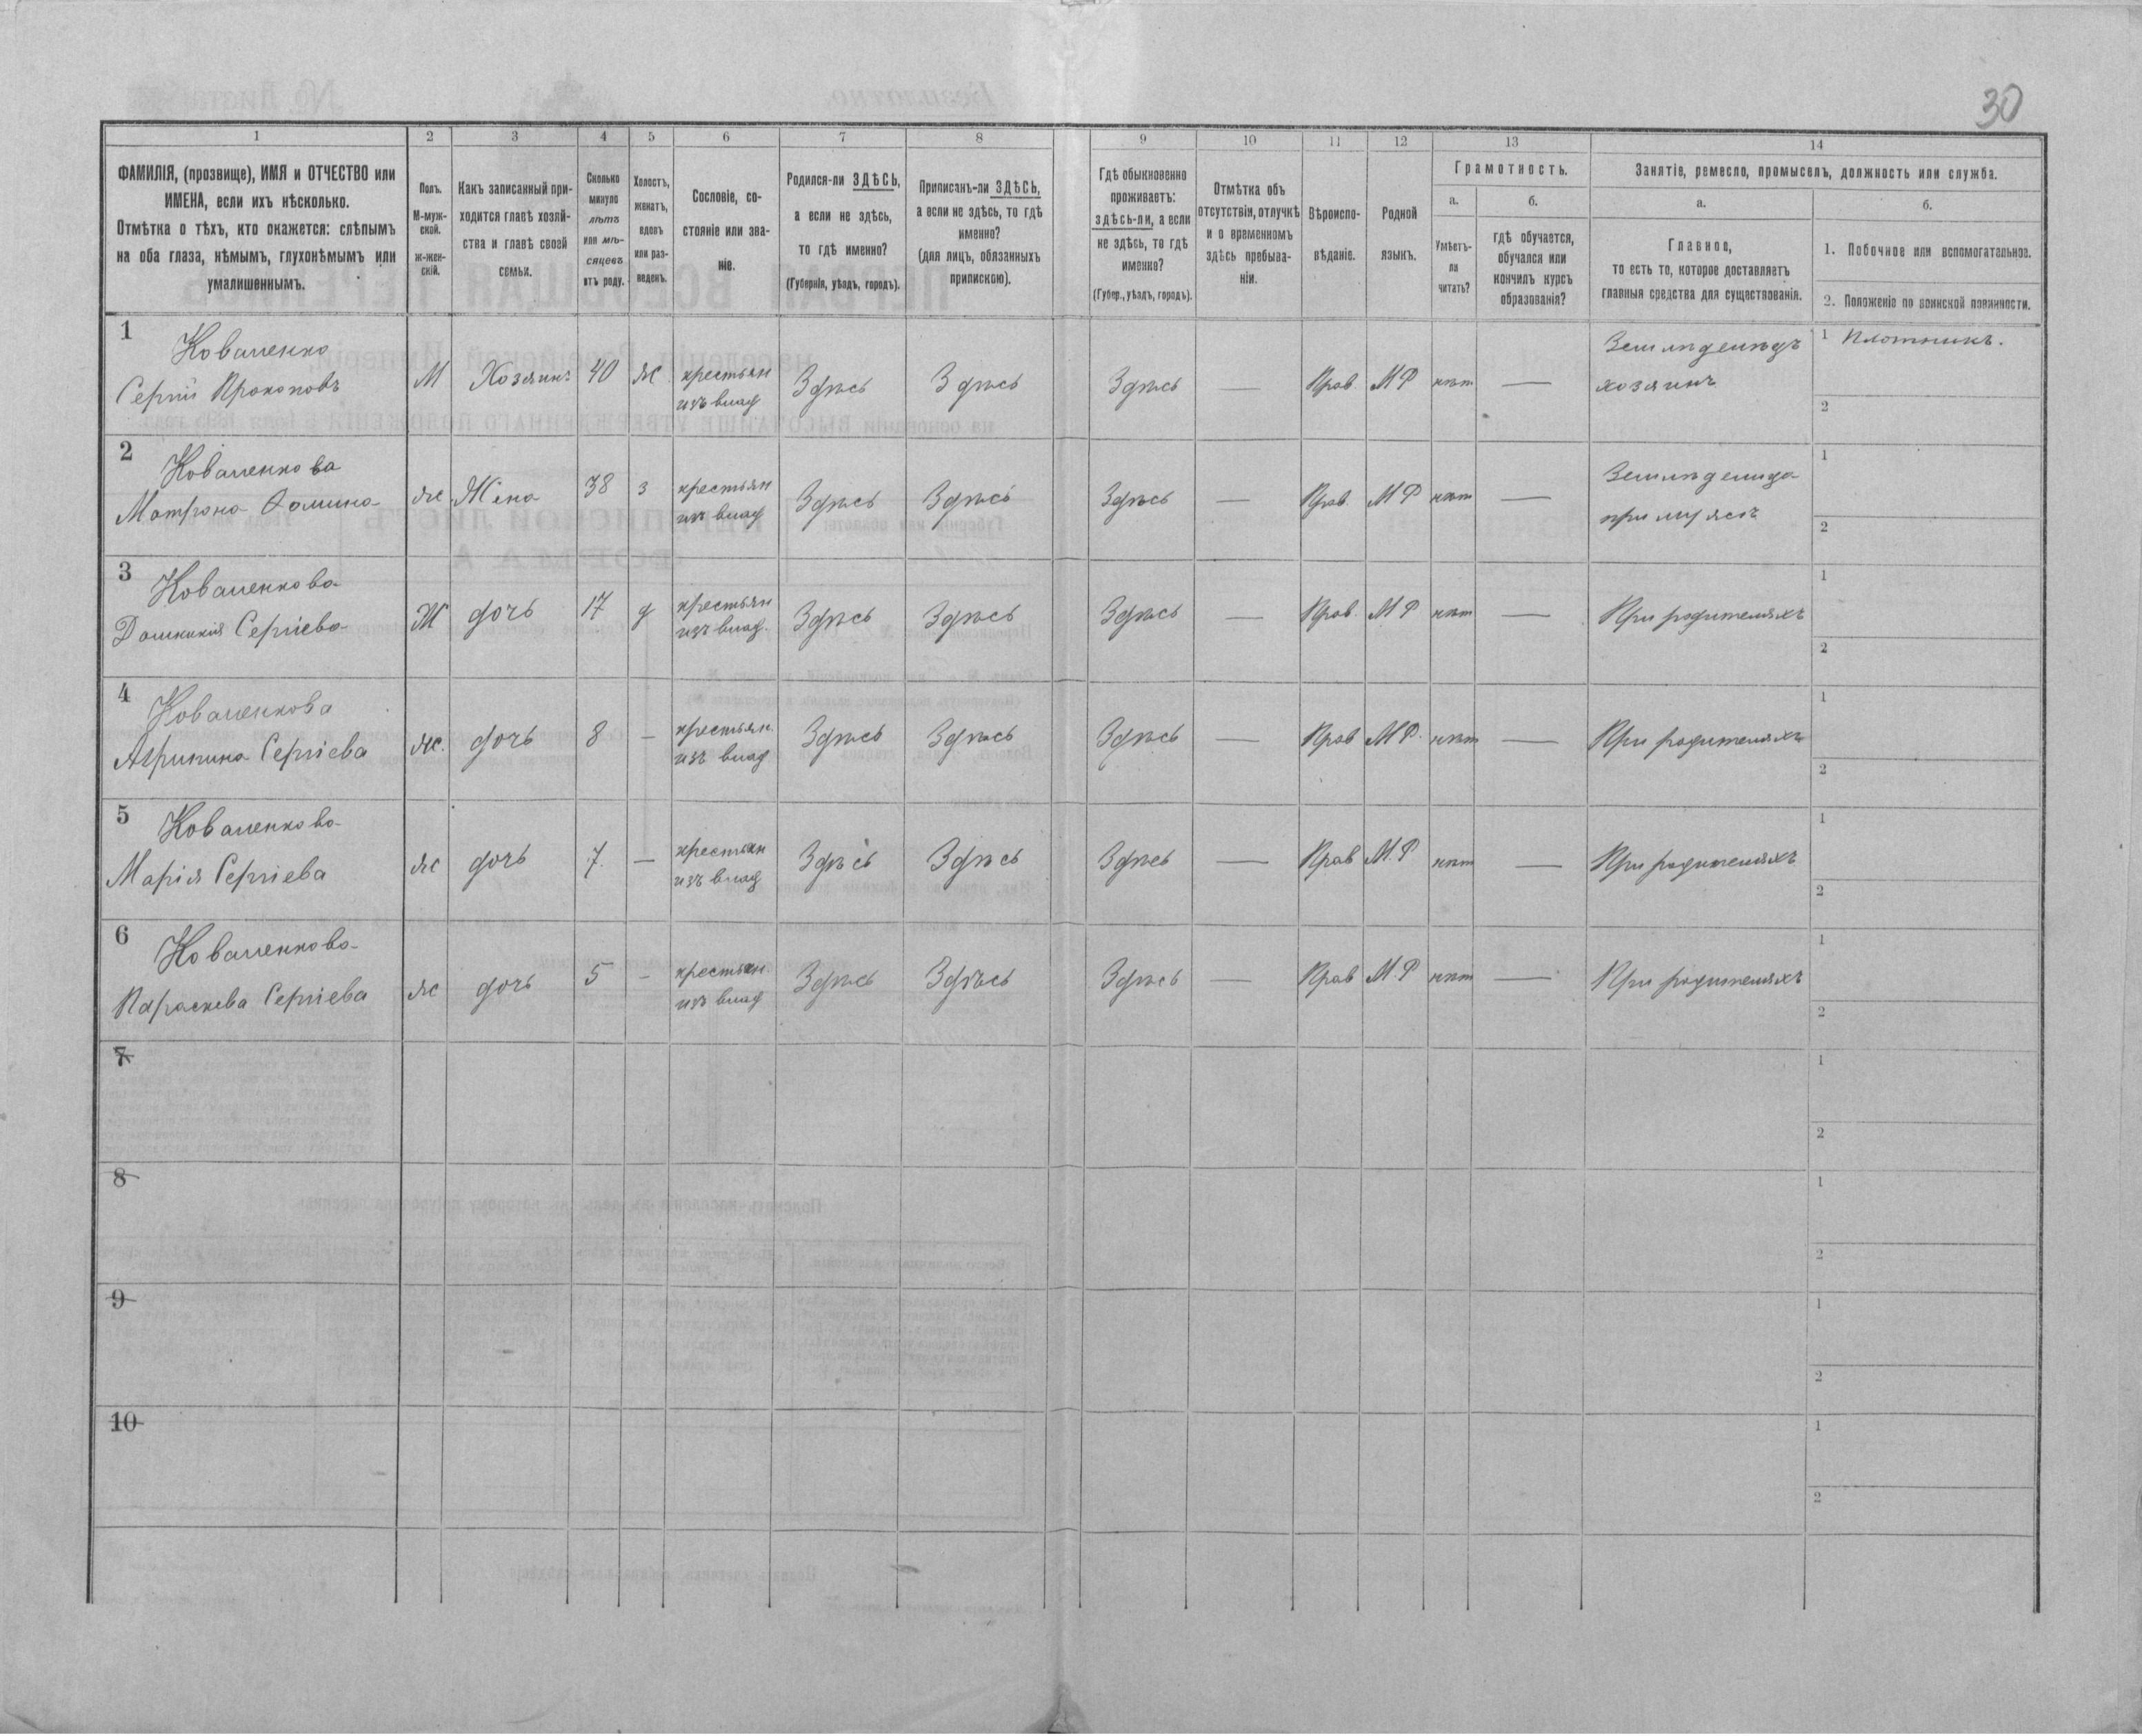 30
1 2 3 4 5 6 7 8 9 10 11 12 13 14
ФАМИЛІЯ, (прозвище), ИМЯ и ОТЧЕСТВО или
ИМЕНА, если ихъ нѣсколько.
Отмѣтка о тѣхъ, кто окажется: слѣпымъ
на оба глаза, нѣмымъ, глухонѣмымъ или
умалишеннымъ.
Полъ.
М-муж-
ской.
Ж-жен-
скій.
Какъ записанный при-
ходится главѣ хозяй-
ства и главѣ своей
семьи.
Сколько
минуло
лѣтъ
или мѣ-
сяцевъ
отъ роду.
Холостъ,
женатъ,
вдовъ
или раз-
веденъ.
Сословіе, со-
стояніе или зва-
ніе.
Родился-ли ЗДѢСЬ,
а если не здѣсь,
то гдѣ именно?
(Губернія, уѣздъ, городъ).
Приписанъ-ли ЗДѢСЬ,
а если не здѣсь, то гдѣ
именно?
(для лицъ, обязанныхъ
припискою).
Гдѣ обыкновенно
проживаетъ:
здѣсь-ли, а если
не здѣсь, то гдѣ
именно?
(Губер., уѣздъ, городъ).
Отмѣтка объ
отсутствіи, отлучкѣ
и о временномъ
здѣсь пребыва-
ніи.
Вѣроиспо-
вѣданіе.
Родной
языкъ.
Грамотность.
а.
Умѣетъ-
ли
читать?
б.
гдѣ обучается,
обучался или
кончилъ курсъ
образованія?
Занятіе, ремесло, промыселъ, должность или служба.
а.
Главное,
то есть то, которое доставляетъ
главныя средства для существованія.
б.
1. Побочное или вспомогательное.
2. Положеніе по воинской повинности.
1 Коваленко
Сергій Прокоповъ
М Хозяинъ 40 ж крестьян
изъ влад
Здѣсь Здѣсь Здѣсь — Прав М Р нѣт —
Земледелецъ
хозяинъ
1 Плотникъ.
2
2 Коваленкова
Матрона Фомина
ж Жена 38 з крестьян
изъ влад
Здѣсь Здѣсь Здѣсь — Прав. М Р нѣт —
при мужѣ
1
2
3 Коваленкова
Сергіева
Ж дочь 17 д крестьян
изъ влад.
Здѣсь Здѣсь Здѣсь — Прав. М Р нѣт — При родителяхъ
1
2
4 Коваленкова
Агрипина Сергіева
ж. дочь 8 — крестьян.
изъ влад
Здѣсь Здѣсь Здѣсь — Прав М Р. нѣт — При родителяхъ
1
2
5 Коваленкова
Марія Сергіева
ж дочь 7. — крестьян
изъ влад
Здѣсь Здѣсь Здѣсь — Прав М. Р нѣт — При родителяхъ
1
2
6 Коваленкова
Параскева Сергіева
ж дочь 5 — крестьян.
изъ влад
Здѣсь Здѣсь Здѣсь — Прав М. Р нѣт — При родителяхъ
1
2
7
1
2
8
1
2
9
1
2
10
1
2